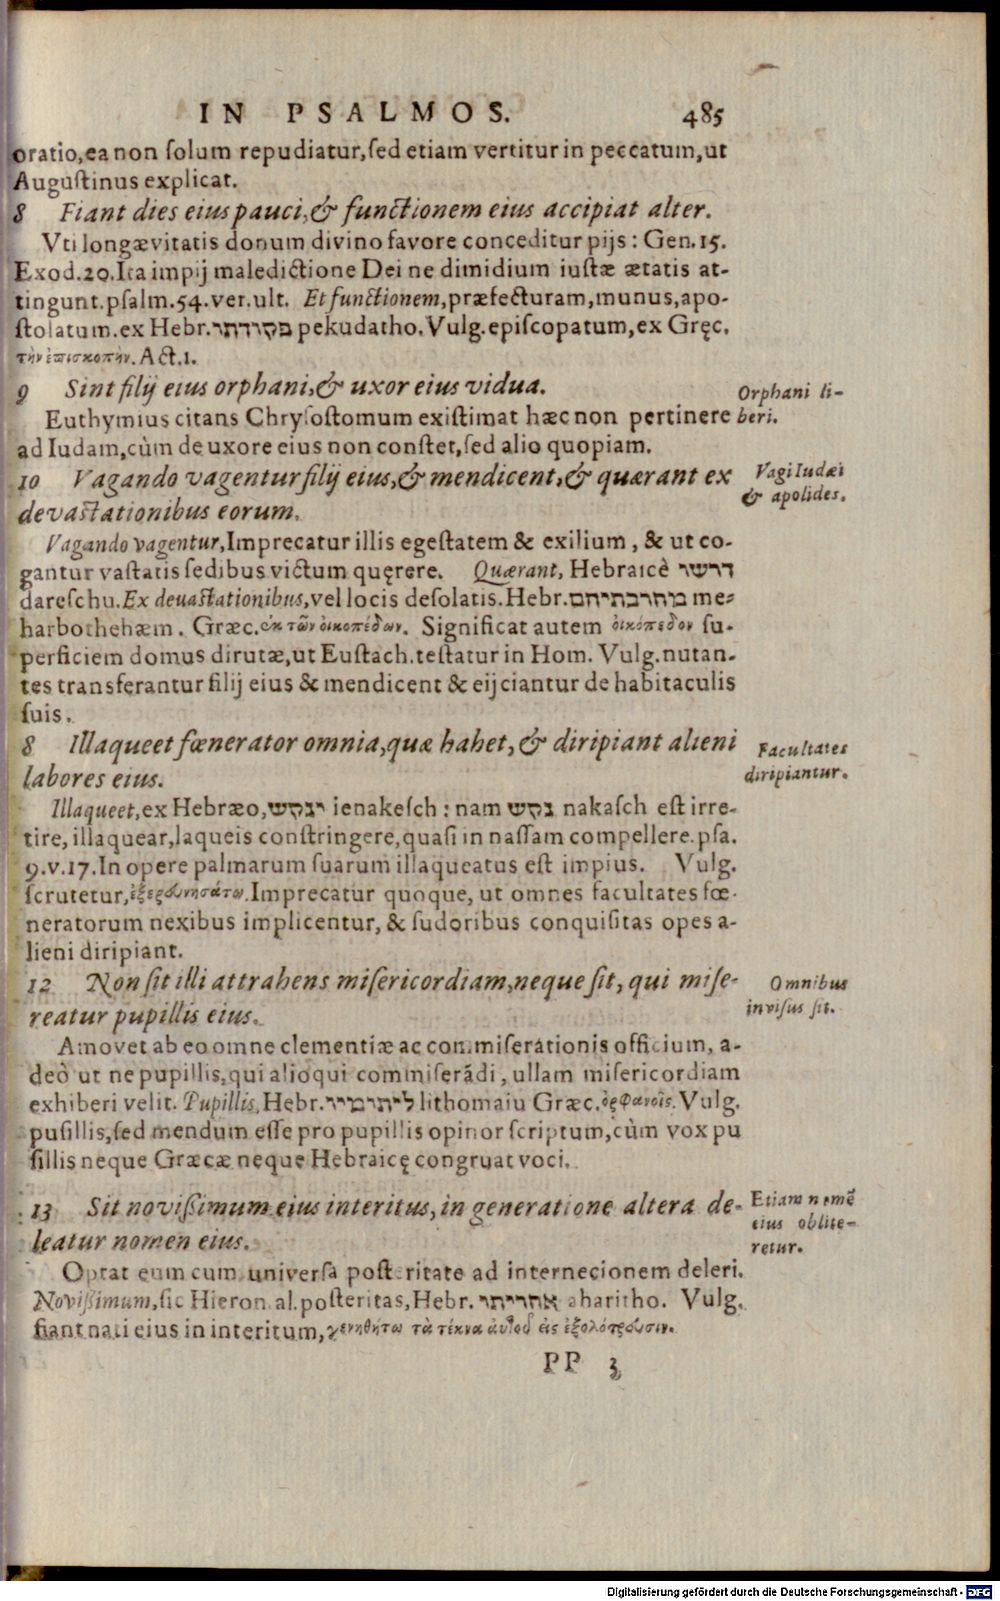 IN PSALMOS. 485
oratio,ea non ſolum repudiatur,ſed etiam vertitur in peccatum,ut
Auguſtinus explicat.
8 Fiant dies eius pauci,& functionem eius accipiat alter.
Vti longævitatis donum divino favore conceditur pijs: Gen.15.
Exod.20.Ita impij maledictione Dei ne dimidium iuſtæ ætatis at-
tingunt.pſalm.54.ver.ult. Et functionem,præfecturam,munus,apo-
ſtolatum.ex Hebr.פקודתו pekudatho.Vulg.epiſcopatum,ex Gręc.
τὴν ἐπισκοπὴν.Act.1.
9 Sint filij eius orphani,& uxor eius vidua.
Orphani li-
beri.
Euthymius citans Chryſoſtomum exiſtimat hæc non pertinere
ad Iudam,cùm de uxore eius non conſtet,ſed alio quopiam.
10 Vagando vagentur filij eius,& mendicent,& quærant ex
devaſtationibus eorum.
Vagi Iudæi
& apolides.
Vagando vagentur,Imprecatur illis egeſtatem & exilium, & ut co-
gantur vaſtatis ſedibus victum quęrere. Quærant, Hebraicè דרשו
dareſchu.Ex devaſtationibus,vel locis deſolatis.Hebr.מחרבתיהם me-
harbothehæm. Græc.ἐκ τῶν οἰκοπέδων. Significat autem οἰκόπεδον ſu-
perficiem domus dirutæ,ut Euſtach.teſtatur in Hom. Vulg.nutan-
tes transferantur filij eius & mendicent & eijciantur de habitaculis
ſuis.
8 Illaqueet fœnerator omnia,quæ hahet, & diripiant alieni
labores eius.
Facultates
diripiantur.
Illaqueet,ex Hebræo,ינקש ienakeſch: nam נקש nakaſch eſt irre-
tire, illaquear,laqueis conſtringere,quaſi in naſſam compellere.pſa.
9.v.17.In opere palmarum ſuarum illaqueatus eſt impius. Vulg.
ſcrutetur,ἐξερευνησάτω.Imprecatur quoque, ut omnes facultates fœ-
neratorum nexibus implicentur, & ſudoribus conquiſitas opes a-
lieni diripiant.
12 Non ſit illi attrahens miſericordiam,neque ſit, qui miſe-
reatur pupillis eius.
Omnibus
inviſus ſit.
Amovet ab eo omne clementiæ ac commiſerationis officium, a-
deò ut ne pupillis,qui alioqui commiſerãdi, ullam miſericordiam
exhiberi velit. Pupillis,Hebr.ליתומיו lithomaiu Græc.ὀρφανοῖς.Vulg.
puſillis,ſed mendum eſſe pro pupillis opinor ſcriptum,cùm vox pu
ſillis neque Græcæ neque Hebraicę congruat voci.
13 Sit noviſſimum eius interitus, in generatione altera de-
leatur nomen eius.
Etiam nomẽ
eius oblite-
retur.
Optat eum cum univerſa poſteritate ad internecionem deleri.
Noviſſimum,ſic Hieron.al.poſteritas,Hebr. אחריתו aharitho. Vulg.
fiant nati eius in interitum,γενηθήτω τὰ τέκνα αὐτοῦ εἰς ἐξολόθρευσιν.
PP 3
Digitalisierung gefördert durch die Deutsche Forschungsgemeinschaft - DFG